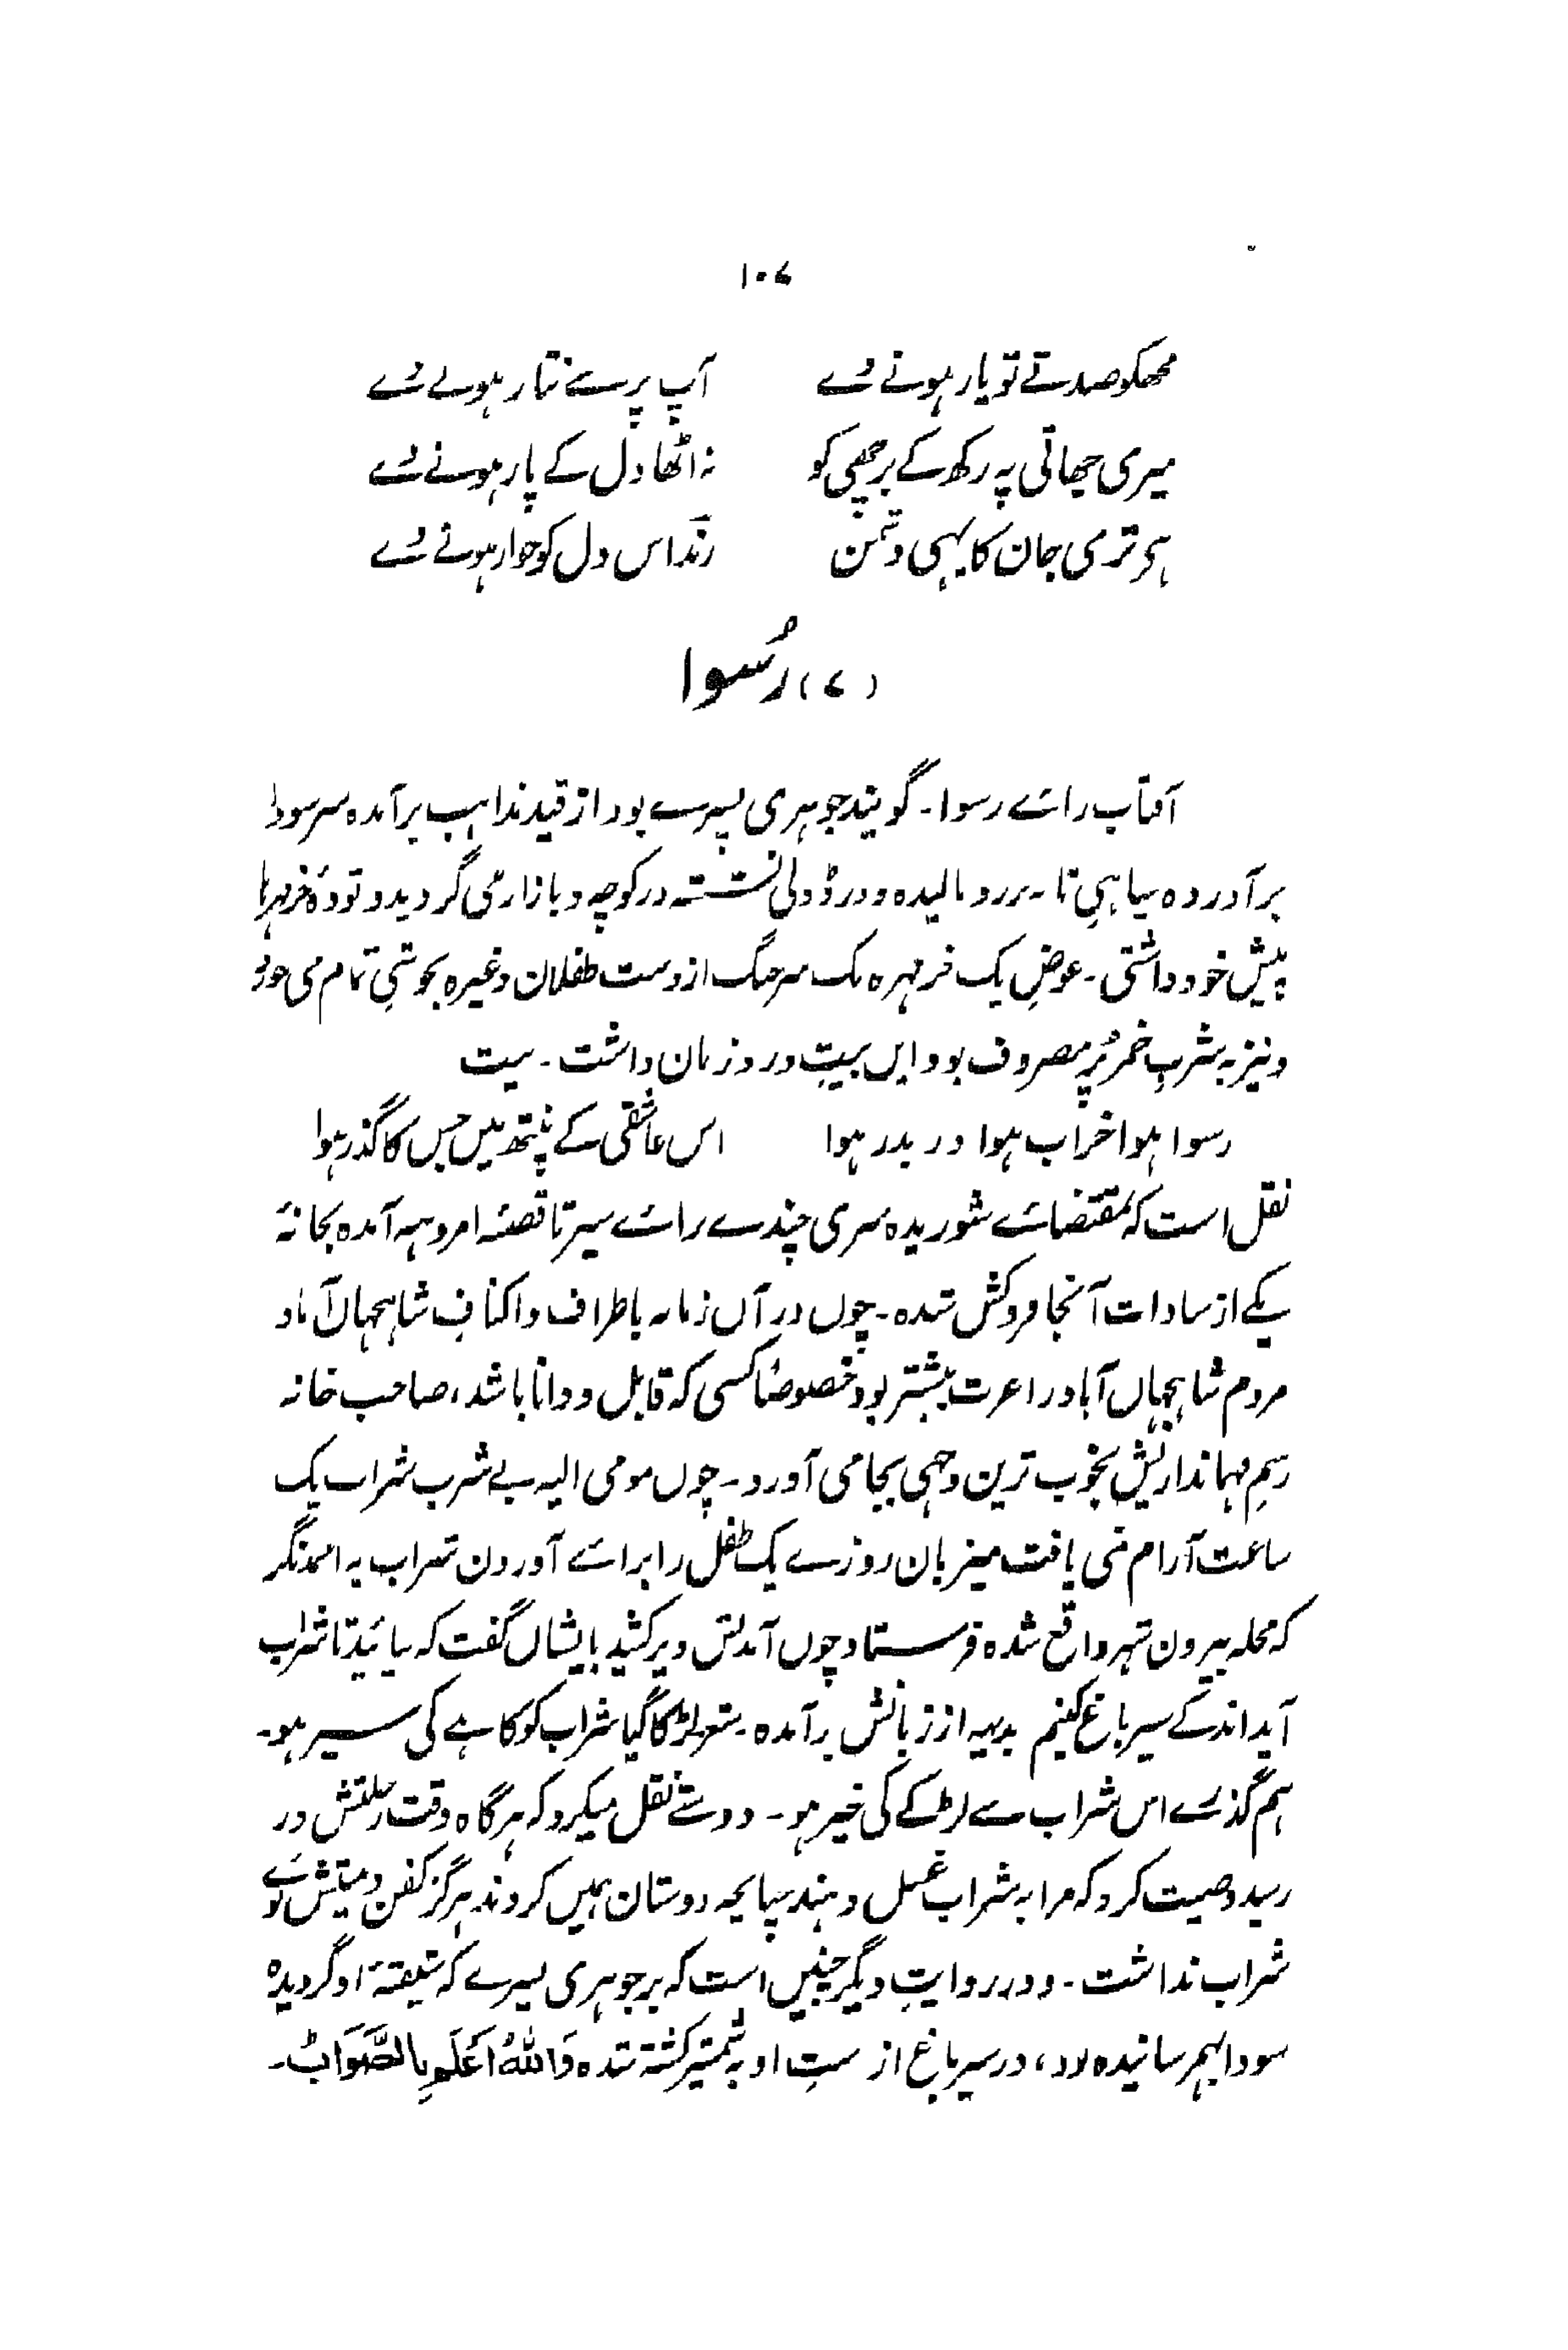 ۱۰۷
مجھکو صدقے تو یار ہونے دے آپ پر سے نثار ہونے دے
میری چھاتی پہ رکھ کے برچھی کو نہ اٹھا دل کے پار ہونے دے
ہی تری جان کا یہی دشمن رند اس دل کو خوار ہونے دے
(۷) رُسوا
آفتاب رائے رسوا۔ گویند جوہری پسرے بود از قید مذاہب برآمدہ سر سودا
برآوردہ سیاہیِ تا۔ بر رو مالیدہ و در ڈولی نشستہ در کوچہ و بازار می گردید و تودۂ خرمہرہا
پیش خود داشتی۔ عوضِ یک خرمہرہ یک سرچنگ از دست طفلان وغیرہ بخوشیِ تمام می خورد
و نیز بہ شربِ خمر پُر مصروف بود ایں بیت ورد زبان داشت۔ بیت
رسوا ہوا خراب ہوا در بدر ہوا اس عاشقی کے پنتھ میں جس کا گذر ہوا
نقل است کہ بمقتضائے شوریدہ سری چندے برائے سیر تا قصبۂ امروہہ آمدہ بخانۂ
یکے از سادات آنجا فروکش شدہ۔ چوں در آں زمانہ باطراف و اکنافِ شاہجہاں آباد
مردم شاہجہاں آباد را عزت بیشتر بود خصوصاً کسی کہ قابل و دانا باشد، صاحب خانہ
رسمِ مہمانداریش بخوب ترین وجہی بجا می آورد۔ چوں مومی الیہ بے شرب شراب یک
ساعت آرام نمی یافت میزبان روزے یک طفل را برائے آوردن شراب بہ احمد نگر
کہ محلہ بیرون شہر واقع شدہ فرستاد چوں آمدنش دیر کشید بایشاں گفت کہ بیائید تا شراب
آید اندکے سیر باغ کنیم بدیہہ از زبانش برآمدہ۔ شعر لڑکا گیا شراب کو کاہے کی سیر ہو۔
ہم گذرے اس شراب سے لڑکے کی خیر ہو۔ دوستے نقل میکرد کہ ہرگاہ وقت رحلتش در
رسید وصیت کرد کہ مرا بہ شراب غسل دہند چنانچہ دوستان ہمیں کردند ہرگز کفن و میتش بوئے
شراب نداشت۔ و در روایتِ دیگر چنیں است کہ بر جوہری پسرے کہ شیفتۂ او گردیدہ
سودا بہم رسانیدہ بود، در سیر باغ از ستِ او بہ شمشیر کشتہ شدہ وَاللہُ اَعْلَم بِالصَّوَابْ۔